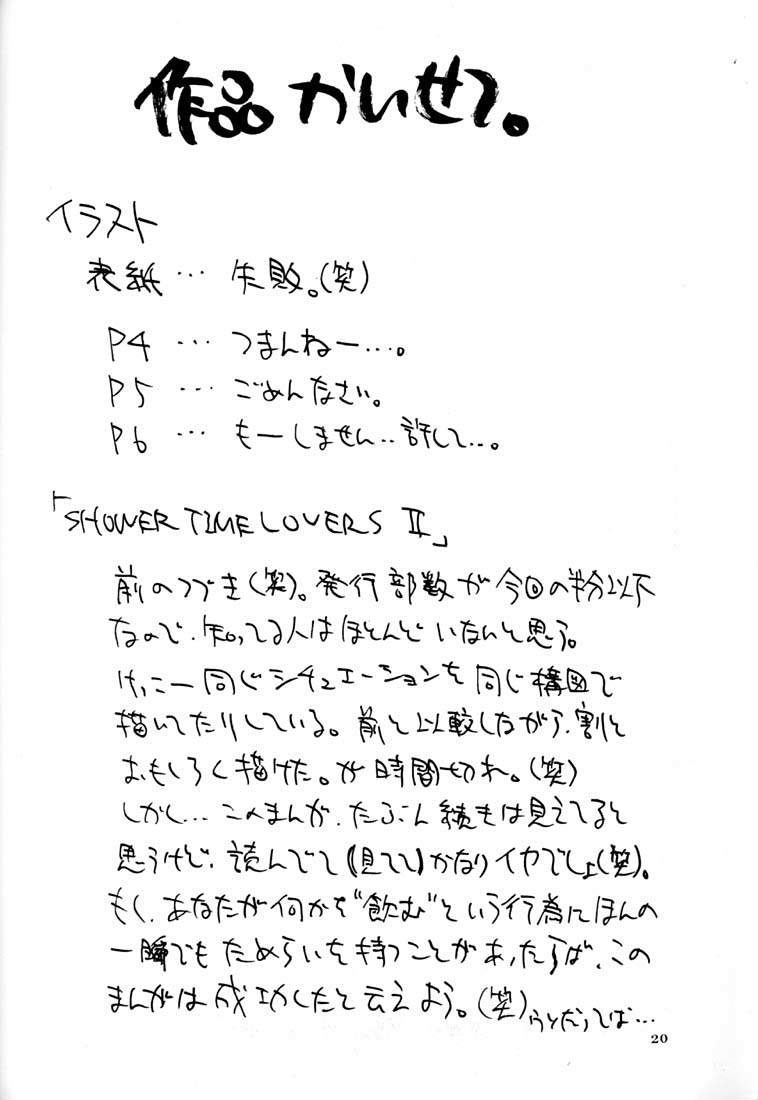 作品かいせつ。
イラスト
表紙… 失敗。(笑)
P4 … つまんねー…。
P5 … ごめんなさい。
P6 … もーしません‥許して…。
「SHOWER TIME LOVERS II」
前のつづき(笑)。発行部数が今回の半分以下
なので、知ってる人はほとんどいないと思う。
けっこー同じシチュエーションを同じ構図で
描いてたりしている。前と比較しながら、割と
おもしろく描けた。が時間切れ。(笑)
しかし…このまんが、たぶん続きは見えてると
思うけど、読んでて(見てて)かなりイヤでしょ(笑)。
もし、あなたが何かを"飲む"という行為にほんの
一瞬でもためらいを持つことがあったらば、この
まんがは成功したと云えよう。(笑)うそだってば…
20